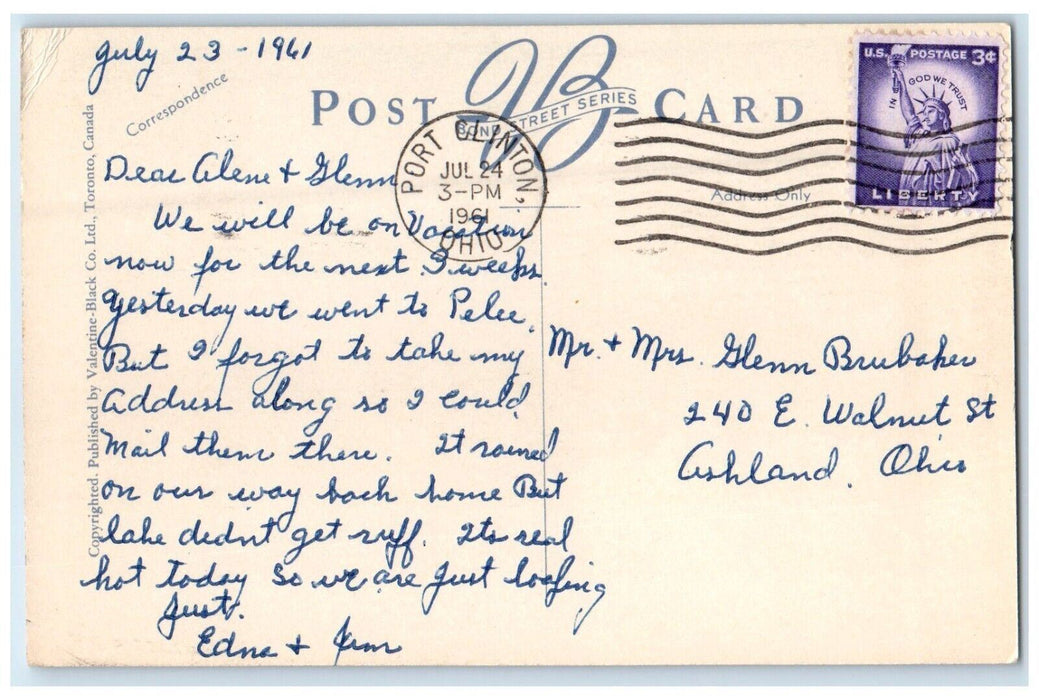 July 23 - 1961
Correspondence
POST CARD
VB
BOND STREET SERIES
U.S. POSTAGE 3¢
IN GOD WE TRUST
LIBERTY
PORT CLINTON,
JUL 24
3-PM
1961
OHIO
Address Only
Copyrighted. Published by Valentine-Black Co. Ltd., Toronto, Canada
Dear Alene + Glenn
We will be on Vacation
now for the next 3 weeks.
Yesterday we went to Pelee.
But I forgot to take my
Address along so I could
Mail them there. It rained
on our way back home But
lake didnt get ruff. Its real
hot today So we are Just loafing
Just.
Edna + Jim
Mr. + Mrs. Glenn Brubaker
240 E. Walnut St
Ashland, Ohio